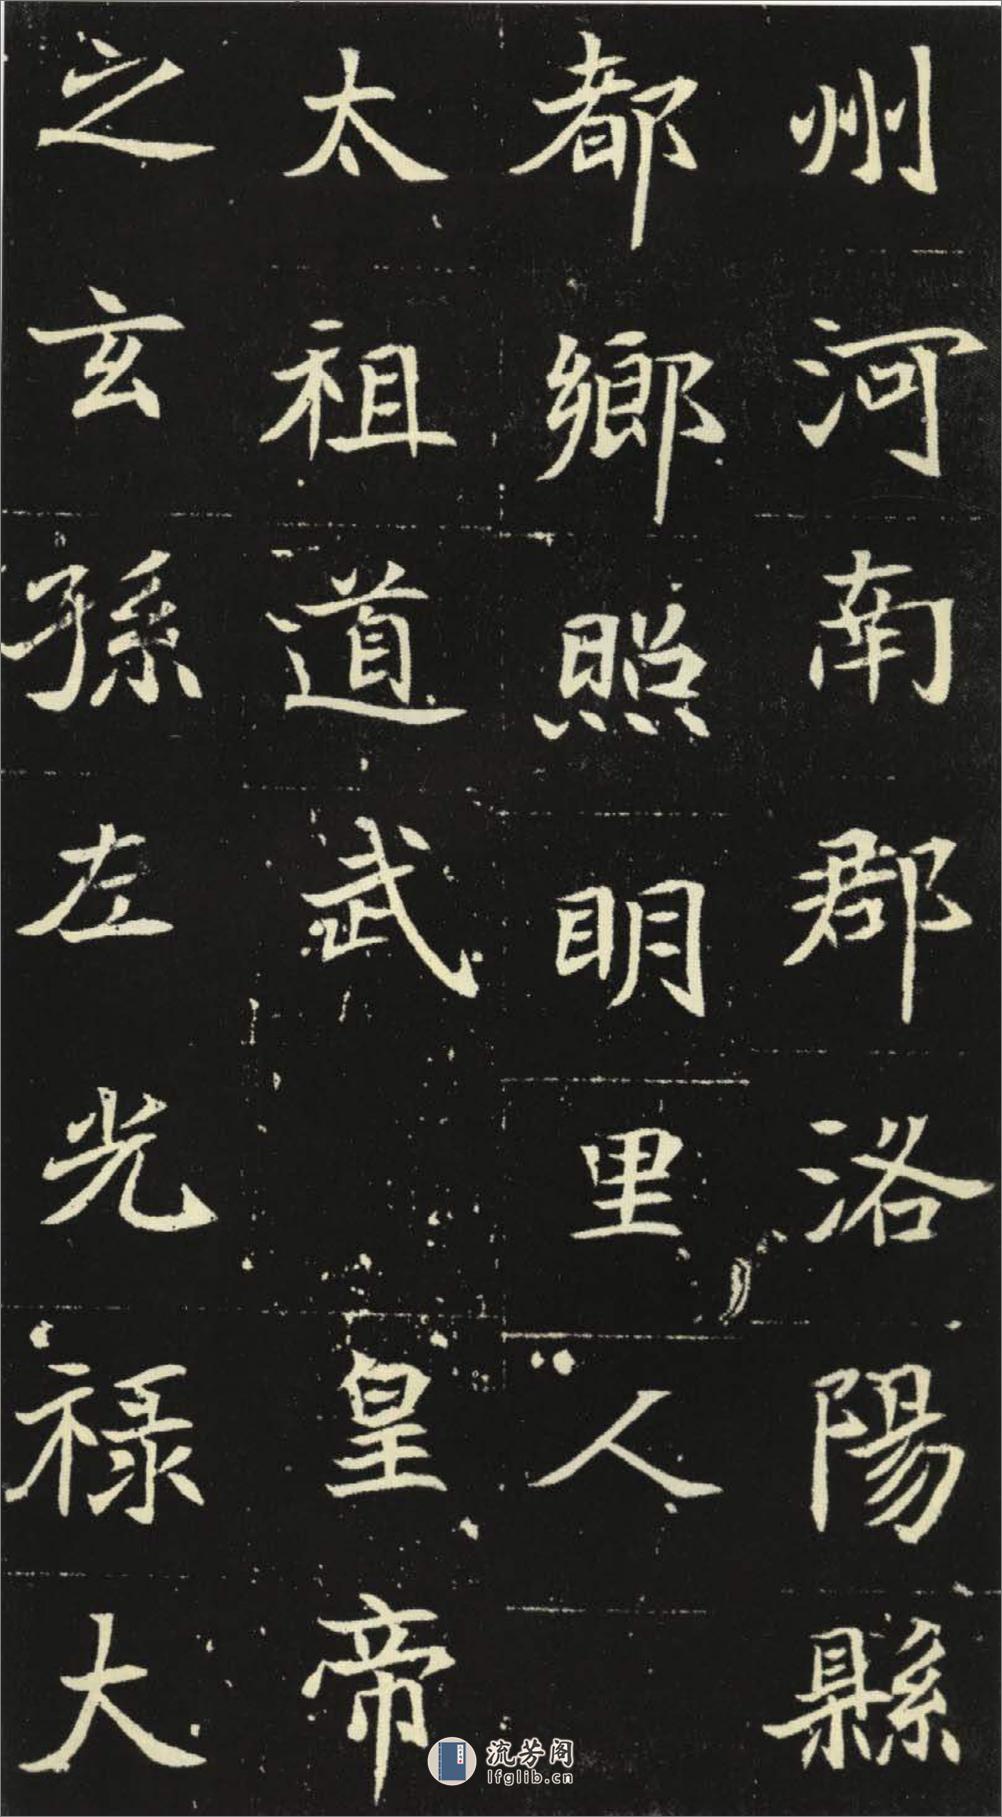 州河南郡洛陽縣
都鄉照明里人
太祖道武皇帝
之玄孫左光祿大
流芳阁
lfglib.cn